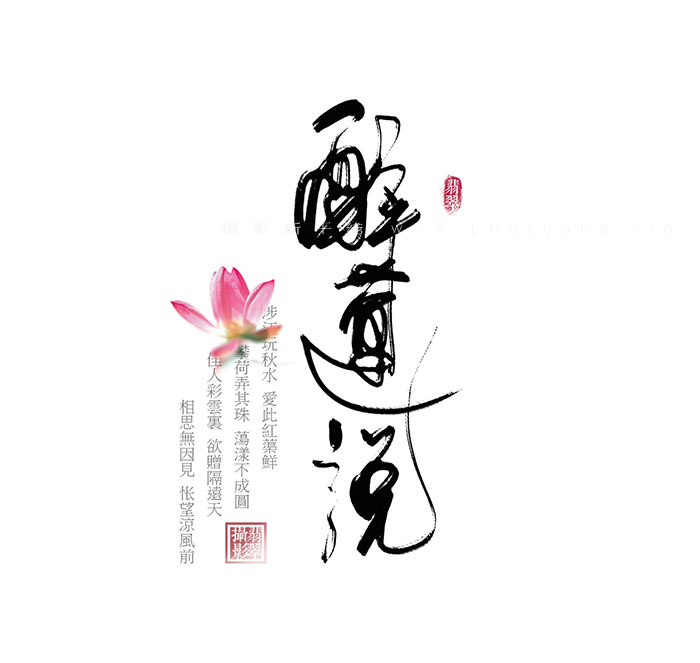 醉蓮说
翡翠
涉江玩秋水 愛此紅蕖鮮
攀荷弄其珠 蕩漾不成圓
佳人彩雲裏 欲贈隔遠天
相思無因見 怅望涼風前
翡翠攝影
www.photosks.vip